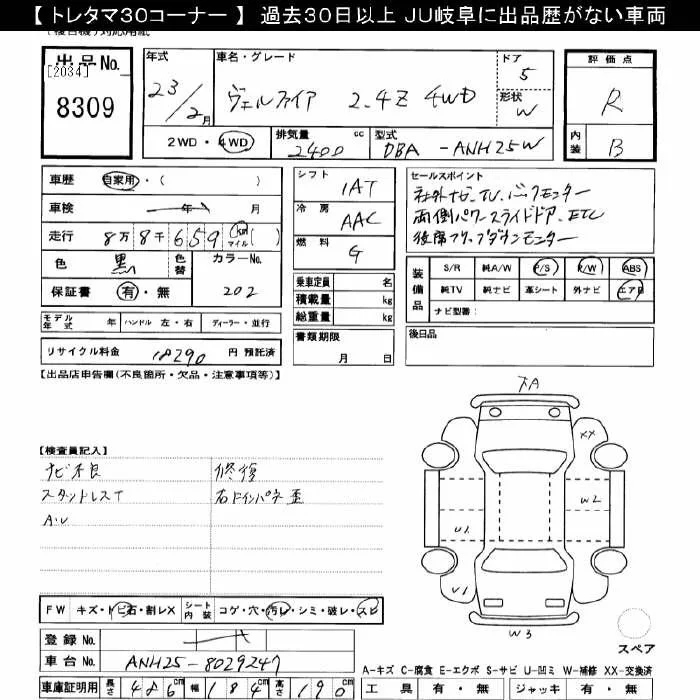 【 トレタマ30コーナー 】 過去30日以上 JU岐阜に出品歴がない車両
出品No.
[2034]
8309
年式
23/2月
車名・グレード
ヴェルファイア 2.4Z 4WD
ドア
5
形状
W
2WD・4WD
排気量 cc
2400
型式
DBA -ANH25W
評価点
R
内装
B
車歴 自家用・( )
車検 年 月
走行 8万8千659 km マイル( )
色 黒 色替 カラーNo.
保証書 有・無 202
シフト
IAT
冷房
AAC
燃料
G
セールスポイント
社外ナビ.TV.バックモニター
両側パワースライドドア.ETC
後席フリップダウンモニター
乗車定員 名
積載量 kg
総重量 kg
装備品
S/R 純A/W P/S R/W ABS
純TV 純ナビ 革シート 外ナビ エアB
ナビ型番:
モデル年式 年 ハンドル 左・右 ディーラー・並行
書類期限
月 日
後日品
リサイクル料金 18290 円 預託済
【出品店申告欄(不良箇所・欠品・注意事項等)】
【検査員記入】
ナビ不良 修復
スタットレスT 右Fインパネ歪
A.U
FW キズ・トビ石・割レX シート内装 コゲ・穴・汚レ・シミ・破レ・スレ
登録No.
車台No. ANH25-8029247
車庫証明用 長さ 486cm 幅 184cm 高さ 190cm
下A
XX
W2
U1
U1
W3
スペア
A-キズ C-腐食 E-エクボ S-サビ U-凹ミ W-補修 XX-交換済
工具 有・無 ジャッキ 有・無